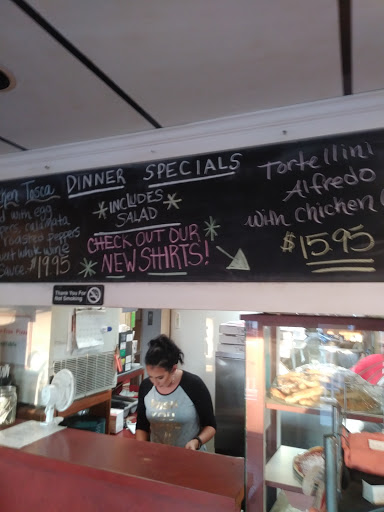 Tosca
with egg
roasted peppers
white wine
Sauce $19.95
DINNER SPECIALS
*INCLUDES
SALAD*
CHECK OUT OUR
*NEW SHIRTS!*
Tortellini
Alfredo
with Chicken
$15.95
Thank You For
Not Smoking